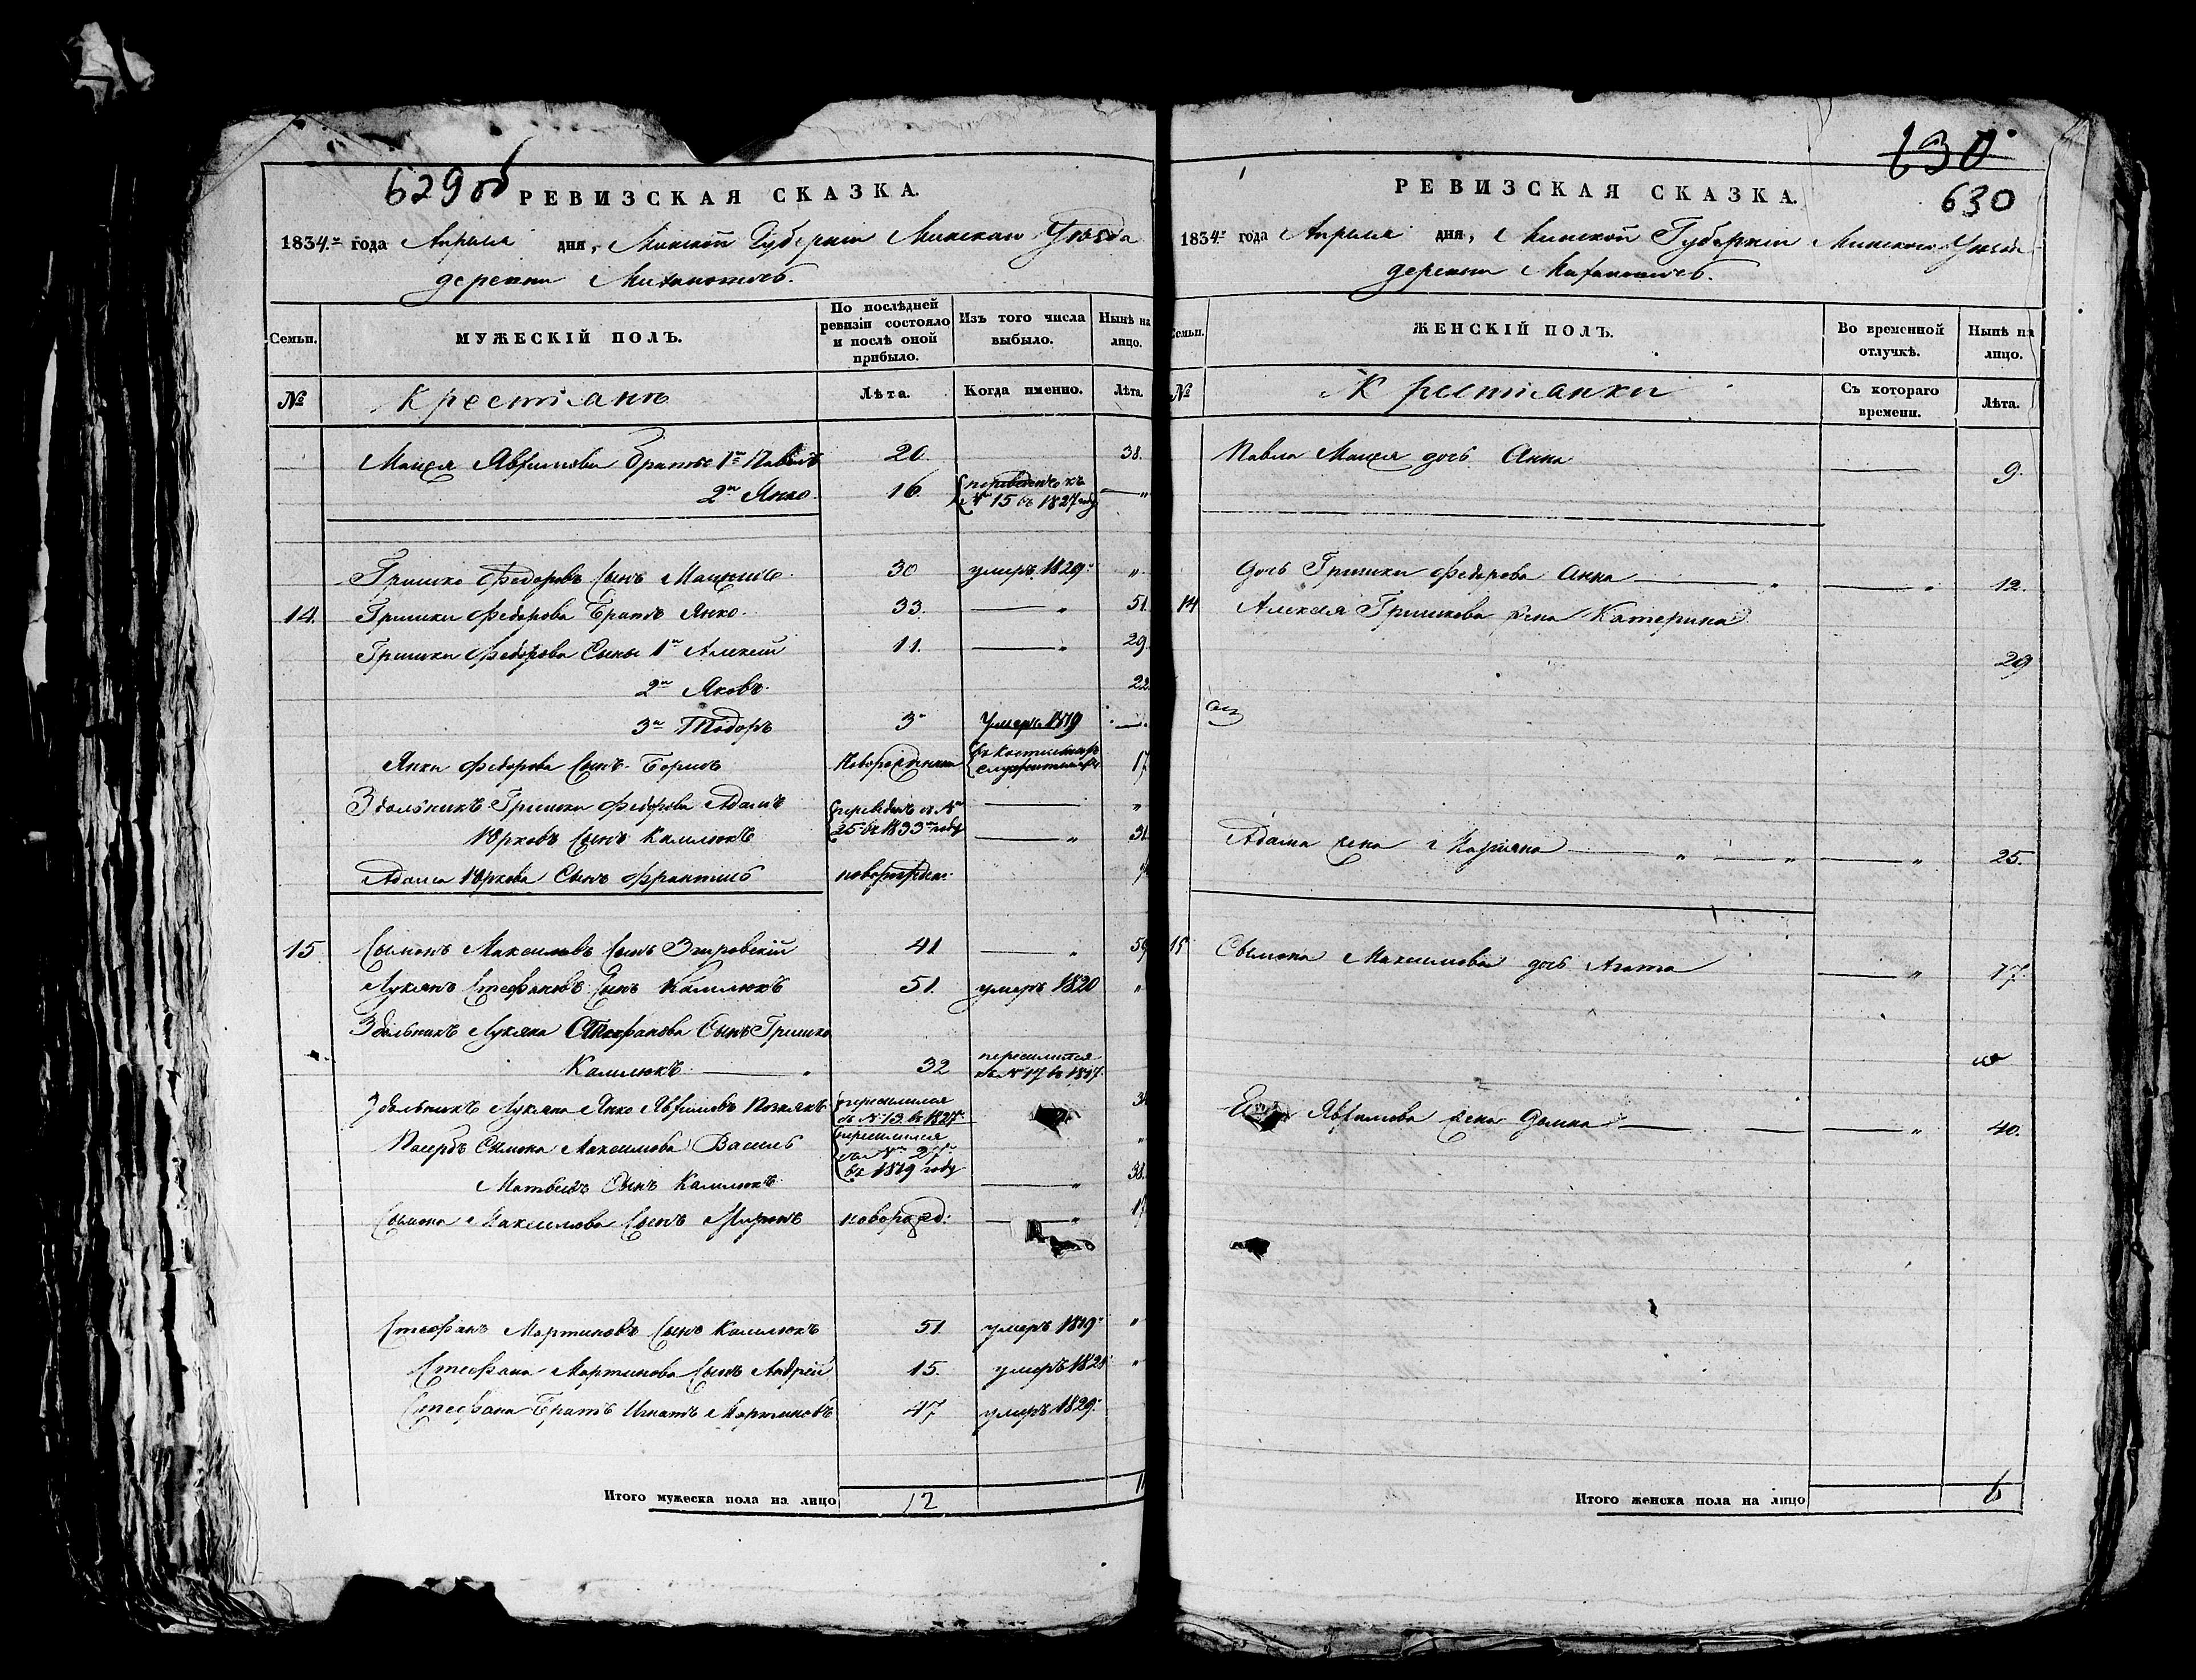 629 об
РЕВИЗСКАЯ СКАЗКА.
1834.го года Апреля дня, Минской Губернии Минскаго Уѣзда
деревни
Семьи.
МУЖЕСКІЙ ПОЛЪ.
По послѣдней ревизіи состояло и послѣ оной прибыло.
Изъ того числа выбыло.
Нынѣ на лицо.
№
Крестіане
Лѣта.
Когда именно.
Лѣта.
Мацея Явхимова братье 1й Павелъ 20 38.
2й Янко. 16. къ № 15 въ 1827 году
Гришко Федоровъ Сынъ 30 умеръ 1829. „
14. Гришки Федорова Братъ Янко. 33. — „ 51.
Гришки Федорова Сыны 1й Алексей 11. — „ 29
2й Яковъ. 22.
3й Тодоръ 3 умеръ 1819 —
Янки Федорова Сынъ Борисъ Новорожденный 17
Гришки Федорова Адамъ переведенъ съ № — „
Юрковъ Сынъ Камлюкъ 25 въ 1833м году — „ 31.
Адама Юркова Сынъ Францишъ новорожден:
15. Сымонъ Максимовъ Сынъ 41 — „ 59
Лукянъ Стефановъ Сынъ Камлюкъ 51. умеръ 1820 „
Лукяна Стефанова Сынъ Гришко
Камлюкъ — 32 въ № 17 въ 1817.
Лукяна Янко Явхимовъ переселился съ № 13 въ 1827
Пасербъ Сымона Максимова Василь съ № 27 „
Матвеевъ Сынъ Камлюкъ въ 1819 году — „ 38.
Сымона Максимова Сынъ Миронъ новорожд: — „ 17
Стефанъ Мартиновъ Сынъ Камлюкъ 51. умеръ 1819. „
Стефана Мартинова Сынъ Андрей 15. умеръ „
Стефана Братъ Игнатъ Мартиновъ 47 умеръ 1829.
Итого мужеска пола на лицо 12 11
630
630
РЕВИЗСКАЯ СКАЗКА.
1834.го года Апреля дня, Минской Губерніи Минскаго Уѣзда
деревни
Семьи.
ЖЕНСКІЙ ПОЛЪ.
Во временной отлучкѣ.
Нынѣ на лицо.
№
Крестіанки
Съ котораго времени.
Лѣта.
Павла Мацея дочь Анна — 9.
Дочь Гришки Федорова Анна — „ — „ 12.
14 Алексея Гришкова жена Катерина
29
Адама жена Маріяна — „ — „ — „ 25.
15 Сымона Максимова дочь Агата — „ 17.
Явхимова жена Домна — — — „ 40.
Итого женска пола на лицо 6